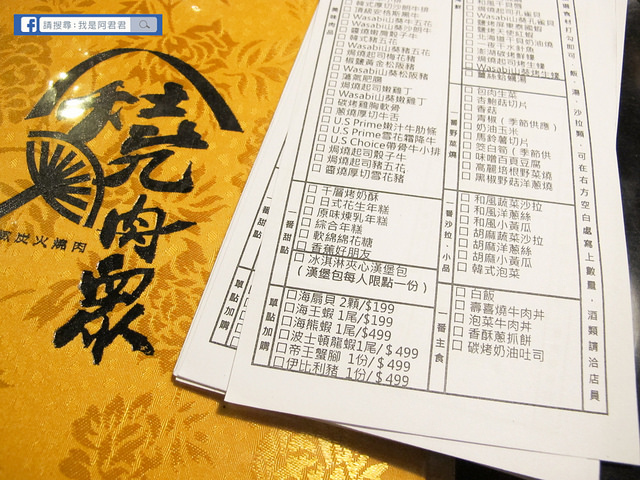 請搜尋:我是阿君君
燒肉眾
炭火燒肉
Wasabi山葵五花
醬燒嫩骰子牛
韓式豬五花
Wasabi山葵豬五花
焗燒起司梅花豬
椒鹽黃金松阪豬
Wasabi山葵松阪豬
薄蒜肥腸
焗燒起司嫩雞丁
Wasabi山葵嫩雞丁
碳烤雞胸軟骨
蔥燒厚切牛舌
U.S Prime嫩汁牛肋條
U.S Prime雪花霜降牛
U.S Choice帶骨牛小排
焗燒起司骰子牛
焗燒起司豬五花
醬燒厚切雪花豬
一番甜點
千層烤奶酥
日式花生年糕
原味煉乳年糕
綜合年糕
軟綿綿花糖
香蕉好朋友
冰淇淋夾心漢堡包
(漢堡包每人限點一份)
單點加購
海扇貝 2顆/$199
海王蝦 1尾/$199
海熊蝦 1尾/$499
波士頓龍蝦1尾/$499
帝王蟹腳 1份/$499
伊比利豬 1份/$499
和風干貝唇
一夜干水針魚
澎湖碳烤鮮蚵
焗燒起司烤生蠔
Wasabi山葵烤生蠔
一番野菜燒
包肉生菜
杏鮑菇切片
香菇
青椒(季節供應)
奶油玉米
馬鈴薯切片
筊白筍(季節供
味噌百頁豆腐
高麗培根野菜燒
黑椒野菇洋蔥燒
一番沙拉、小品
和風蔬菜沙拉
和風洋蔥絲
和風小黃瓜
胡麻蔬菜沙拉
胡麻洋蔥絲
胡麻小黃瓜
韓式泡菜
一番主食
白飯
壽喜燒牛肉丼
泡菜牛肉丼
香酥蔥抓餅
碳烤奶油吐司
選食材打勾即可,飯、湯、沙拉類,可在右方空白處寫上數量,酒類請洽店員